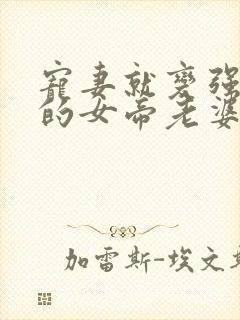 寵妻就變强
的女帝老婆
加雷斯-埃文斯